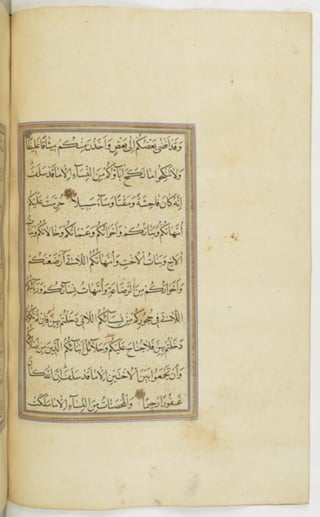 وقد افضى بعضكم الى بعض واخذن منكم ميثاقا غليظا
ولا تنكحوا ما نكح اباؤكم من النساء الا ما قد سلف
انه كان فاحشة ومقتا وساء سبيلا حرمت عليكم
امهاتكم وبناتكم واخواتكم وعماتكم وخالاتكم وبنات
الاخ وبنات الاخت وامهاتكم اللاتى ارضعنكم
واخواتكم من الرضاعة وامهات نسائكم وربائبكم
اللاتى فى حجوركم من نسائكم اللاتى دخلتم بهن فان لم تكونوا
دخلتم بهن فلا جناح عليكم وحلائل ابنائكم الذين من اصلابكم
وان تجمعوا بين الاختين الا ما قد سلف ان الله كان
غفورا رحيما والمحصنات من النساء الا ما ملكت